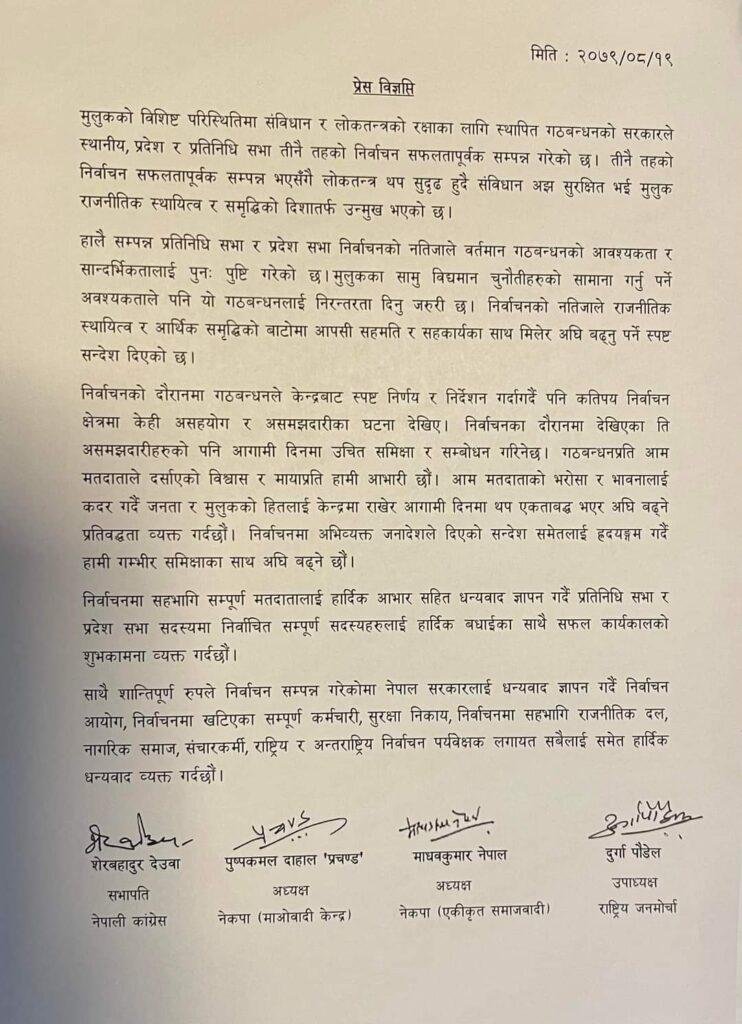 मिति : २०७९/०८/१९
प्रेस विज्ञप्ति
मुलुकको विशिष्ट परिस्थितिमा संविधान र लोकतन्त्रको रक्षाका लागि स्थापित गठबन्धनको सरकारले
स्थानीय, प्रदेश र प्रतिनिधि सभा तीनै तहको निर्वाचन सफलतापूर्वक सम्पन्न गरेको छ। तीनै तहको
निर्वाचन सफलतापूर्वक सम्पन्न भएसँगै लोकतन्त्र थप सुदृढ हुदै संविधान अझ सुरक्षित भई मुलुक
राजनीतिक स्थायित्व र समृद्धिको दिशातर्फ उन्मुख भएको छ।
हालै सम्पन्न प्रतिनिधि सभा र प्रदेश सभा निर्वाचनको नतिजाले वर्तमान गठबन्धनको आवश्यकता र
सान्दर्भिकतालाई पुनः पुष्टि गरेको छ। मुलुकका सामु विद्यमान चुनौतीहरुको सामाना गर्नु पर्ने
अवश्यकताले पनि यो गठबन्धनलाई निरन्तरता दिनु जरुरी छ। निर्वाचनको नतिजाले राजनीतिक
स्थायित्व र आर्थिक समृद्धिको बाटोमा आपसी सहमति र सहकार्यका साथ मिलेर अघि बढ्नु पर्ने स्पष्ट
सन्देश दिएको छ।
निर्वाचनको दौरानमा गठबन्धनले केन्द्रबाट स्पष्ट निर्णय र निर्देशन गर्दागर्दै पनि कतिपय निर्वाचन
क्षेत्रमा केही असहयोग र असमझदारीका घटना देखिए। निर्वाचनका दौरानमा देखिएका ति
असमझदारीहरुको पनि आगामी दिनमा उचित समिक्षा र सम्बोधन गरिनेछ। गठबन्धनप्रति आम
मतदाताले दर्साएको विश्वास र मायाप्रति हामी आभारी छौं। आम मतदाताको भरोसा र भावनालाई
कदर गर्दै जनता र मुलुकको हितलाई केन्द्रमा राखेर आगामी दिनमा थप एकताबद्ध भएर अघि बढ्ने
प्रतिवद्धता व्यक्त गर्दछौं। निर्वाचनमा अभिव्यक्त जनादेशले दिएको सन्देश समेतलाई ह्रदयङ्गम गर्दै
हामी गम्भीर समिक्षाका साथ अघि बढ्ने छौं।
निर्वाचनमा सहभागि सम्पूर्ण मतदातालाई हार्दिक आभार सहित धन्यवाद ज्ञापन गर्दै प्रतिनिधि सभा र
प्रदेश सभा सदस्यमा निर्वाचित सम्पूर्ण सदस्यहरुलाई हार्दिक बधाईका साथै सफल कार्यकालको
शुभकामना व्यक्त गर्दछौं।
साथै शान्तिपूर्ण रुपले निर्वाचन सम्पन्न गरेकोमा नेपाल सरकारलाई धन्यवाद ज्ञापन गर्दै निर्वाचन
आयोग, निर्वाचनमा खटिएका सम्पूर्ण कर्मचारी, सुरक्षा निकाय, निर्वाचनमा सहभागि राजनीतिक दल,
नागरिक समाज, संचारकर्मी, राष्ट्रिय र अन्तराष्ट्रिय निर्वाचन पर्यवेक्षक लगायत सबैलाई समेत हार्दिक
धन्यवाद व्यक्त गर्दछौं।
शेरबहादुर देउवा पुष्पकमल दाहाल 'प्रचण्ड' माधवकुमार नेपाल दुर्गा पौडेल
सभापति अध्यक्ष अध्यक्ष उपाध्यक्ष
नेपाली कांग्रेस नेकपा (माओवादी केन्द्र) नेकपा (एकीकृत समाजवादी) राष्ट्रिय जनमोर्चा